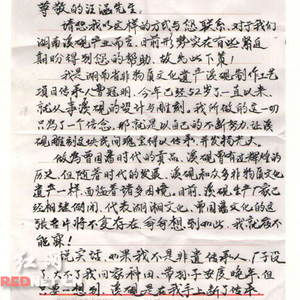 尊敬的汪涵先生:
请恕我以这样的方式与您联系,对于我们
湖南溪砚产业而言,目前形势实在有些紧迫
期盼得到您的帮助,故先此下策!
我是湖南省非物质文化遗产溪砚制作工艺
项目传承人曾冠明,今年已经52岁了一直以来,
就从事溪砚的设计与雕刻。我所做的这一切
只为了一个信念,那就是以自己的不断努力,让溪
砚雕刻这块民间瑰宝得以传承、并发扬光大。
做为曾国藩时代的贡品,溪砚曾有过辉煌的
历史,但随着时代的发展,溪砚和众多非物质文化
遗产一样,面临着诸多困境,目前,溪砚生产厂家已
经相继倒闭,代表湖湘文化、曾国藩文化的这
张名片将不复存在
每每想到如此,我就夜不
能寐!
说实话,如果我不是非遗传承人,厂子没
了大不了我回家种田、带孙子安度晚年,但
是一想到,溪砚是在我手上断了传承
红网
REDNET